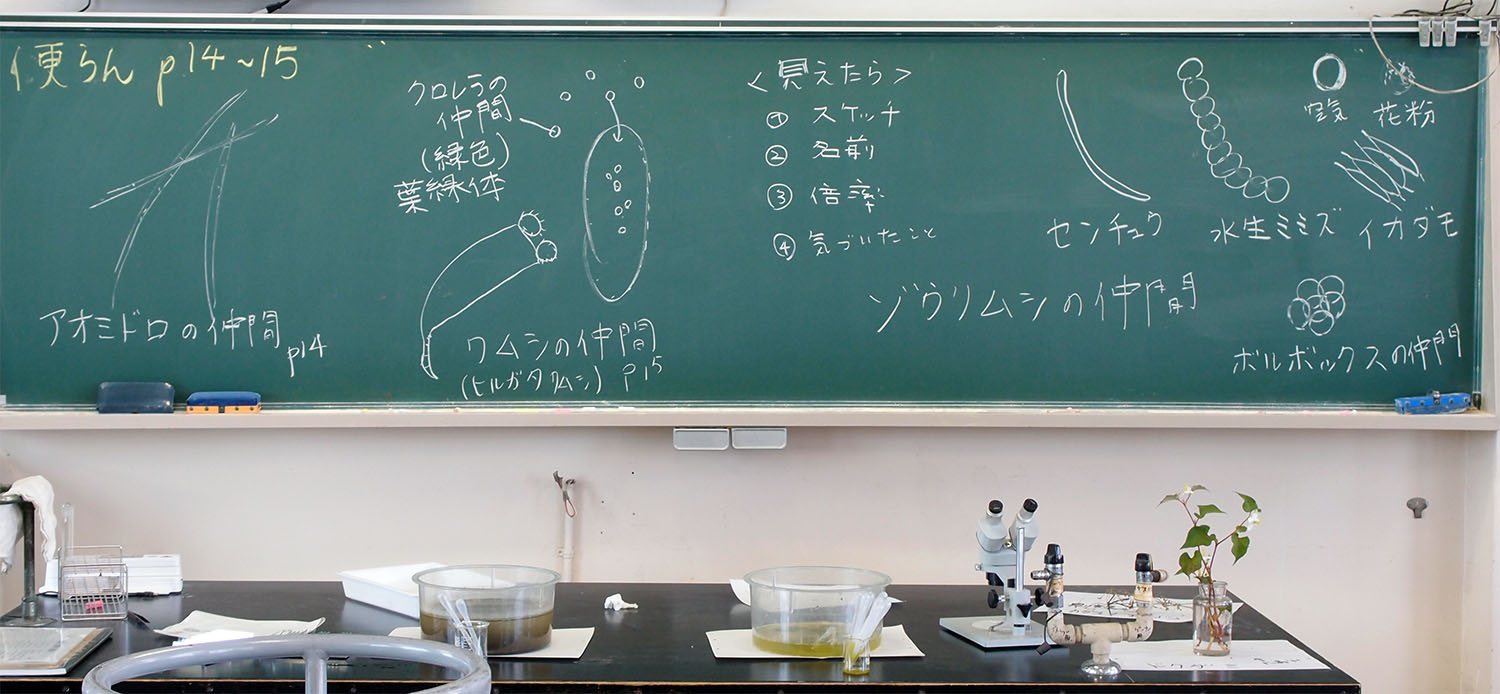 便らん p14~15
アオミドロの仲間
p14
クロレラの
仲間
(緑色)
葉緑体
ワムシの仲間
(ヒルガタワムシ) p15
<見えたら>
① スケッチ
② 名前
③ 倍率
④ 気づいたこと
センチュウ
水生ミミズ
空気
花粉
イカダモ
ゾウリムシの仲間
ボルボックスの仲間
ドクダミ